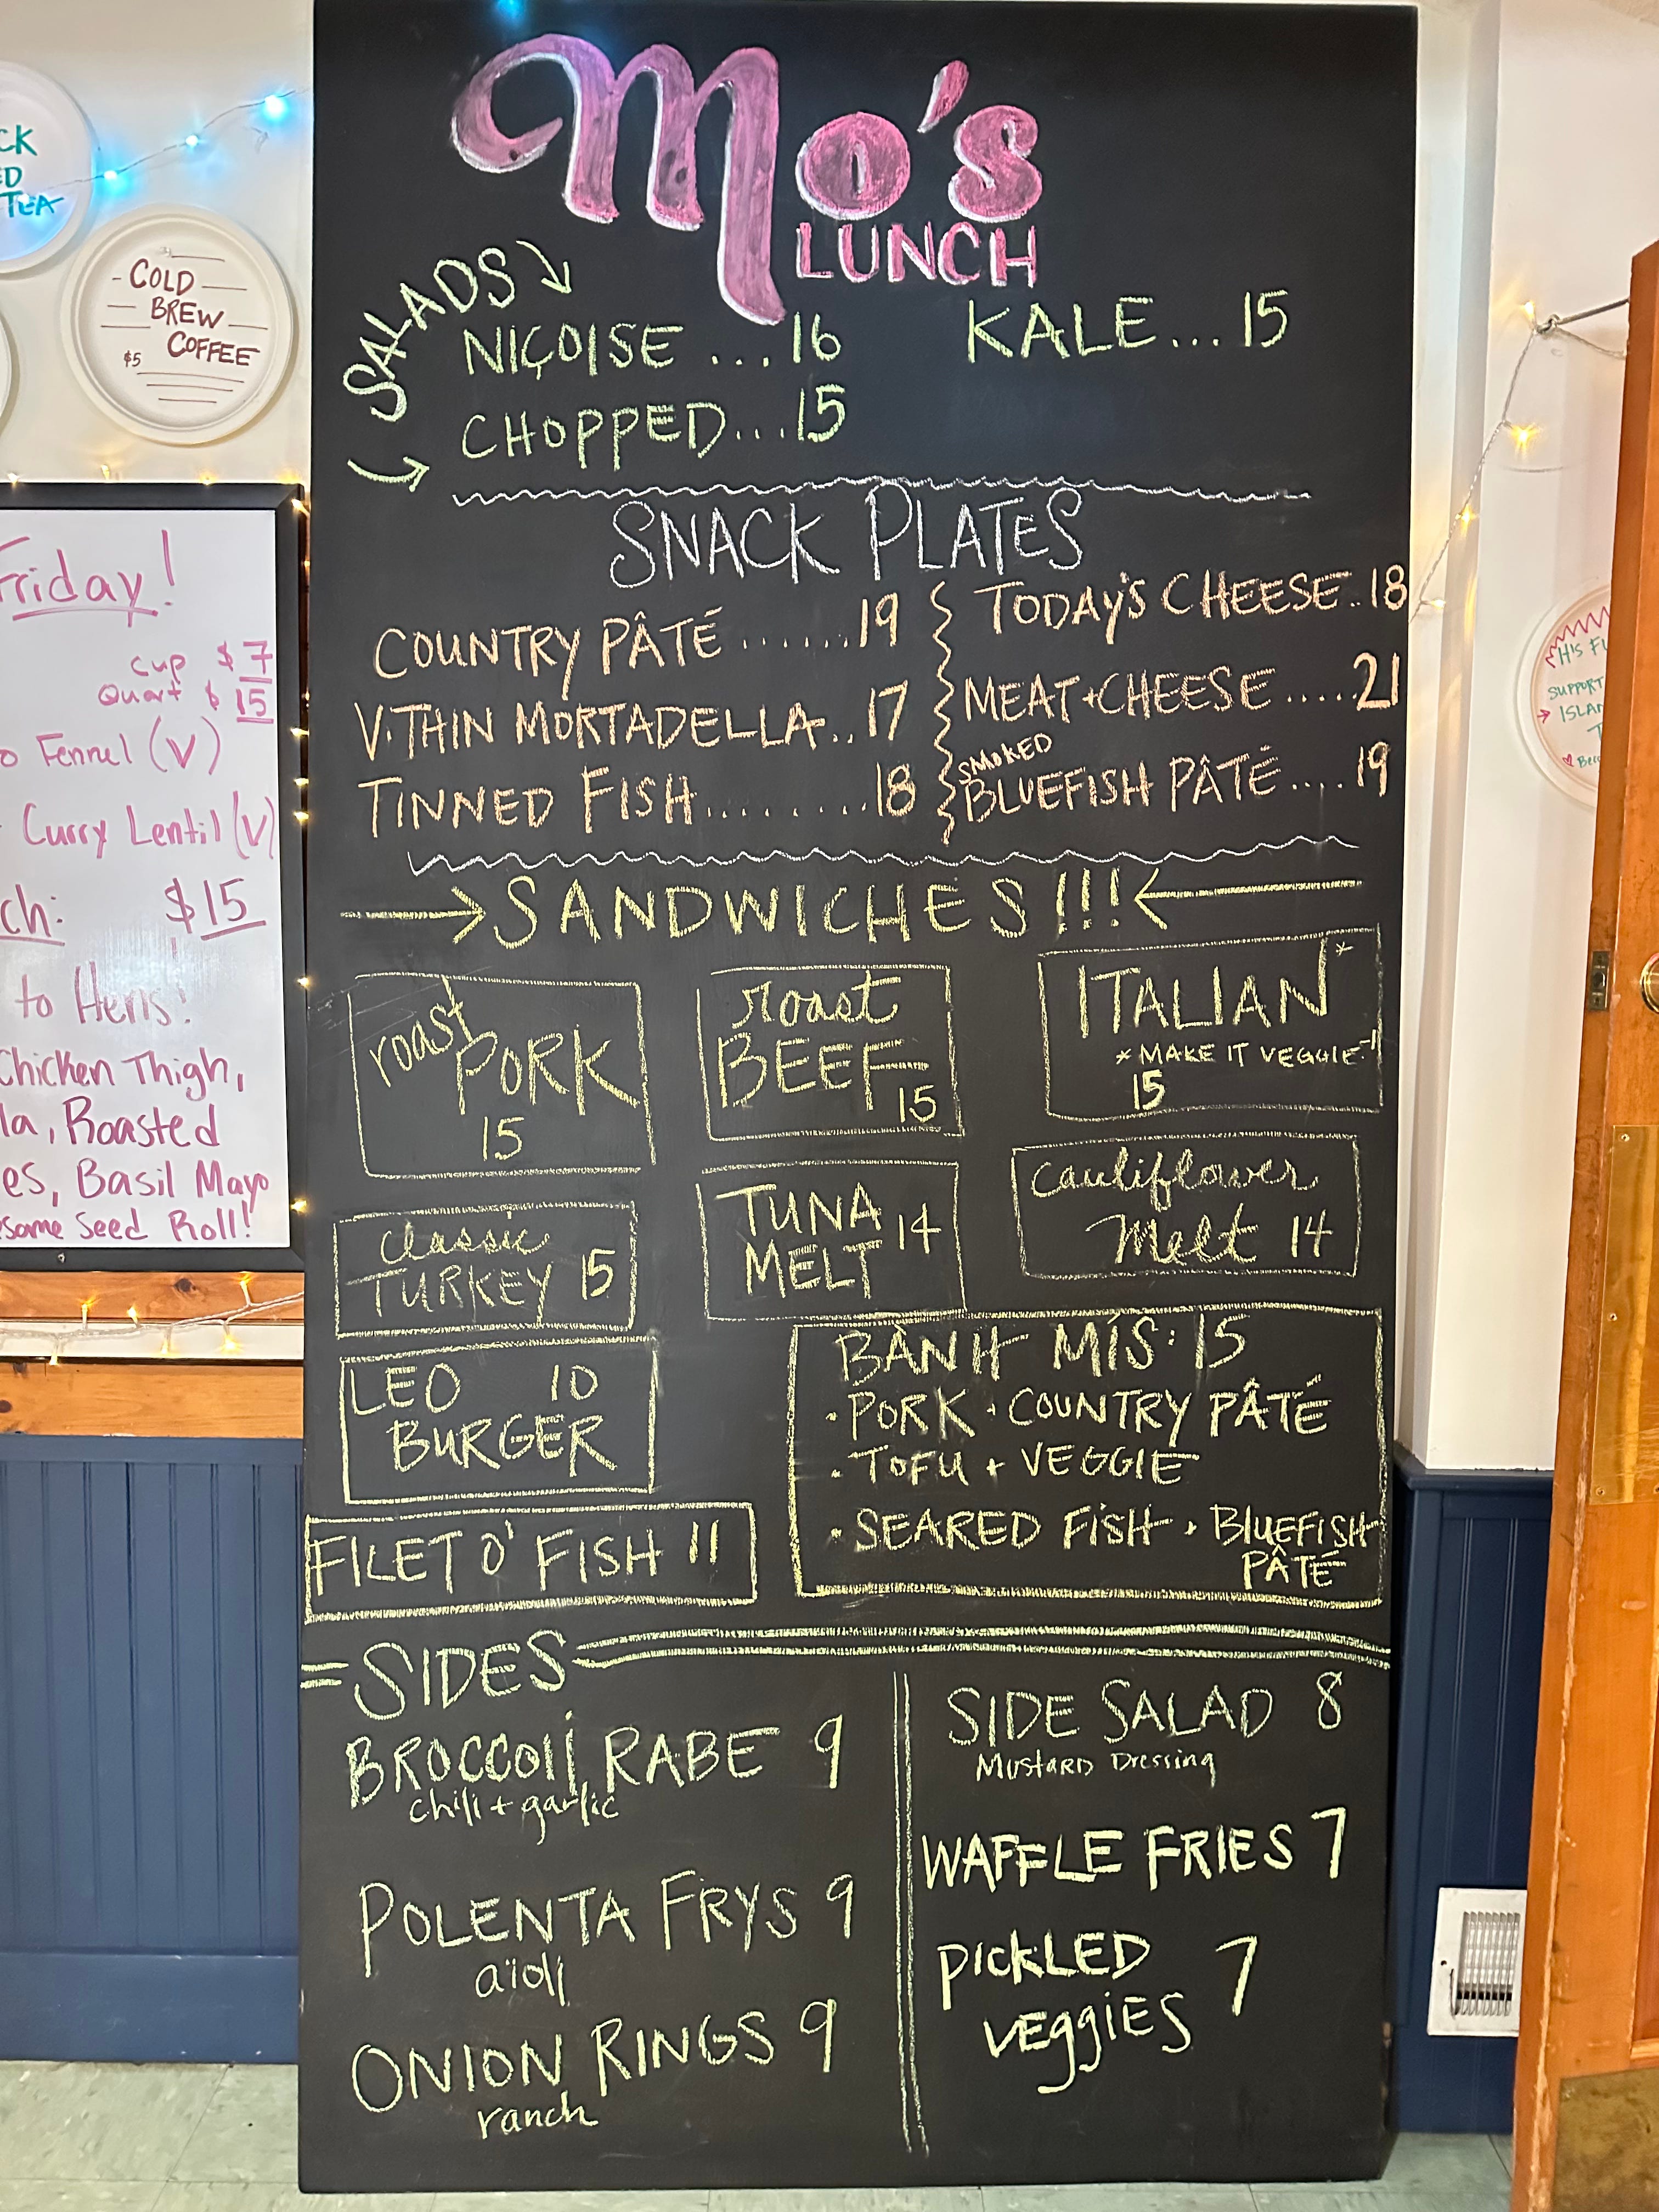 Mo's
LUNCH
SALADS
NIÇOISE ... 16
CHOPPED...15
KALE...15
SNACK PLATES
COUNTRY PÂTÉ .......19
V.THIN MORTADELLA..17
TINNED FISH.........18
TODAY'S CHEESE..18
MEAT+CHEESE.....21
SMOKED
BLUEFISH PÂTÉ....19
SANDWICHES!!!
roast
PORK
15
roast
BEEF 15
ITALIAN*
* MAKE IT VEGGIE -1
15
classic
TURKEY 15
TUNA
MELT 14
cauliflower
melt 14
LEO 10
BURGER
BÀNH MÍS: 15
· PORK · COUNTRY PÂTÉ
· TOFU + VEGGIE
· SEARED FISH · BLUEFISH
PÂTÉ
FILET O' FISH 11
SIDES
BROCCOli RABE 9
chili + garlic
POLENTA FRYS 9
aïoli
ONION RINGS 9
ranch
SIDE SALAD 8
Mustard Dressing
WAFFLE FRIES 7
PICKLED 7
VEggiES
TEA
COLD
BREW
COFFEE
$5
Friday!
cup $7
Quart $15
Fennel (V)
Curry Lentil (V)
$15
to Hers!
Chicken Thigh,
Roasted
Basil Mayo
Seed Roll!
SUPPORT